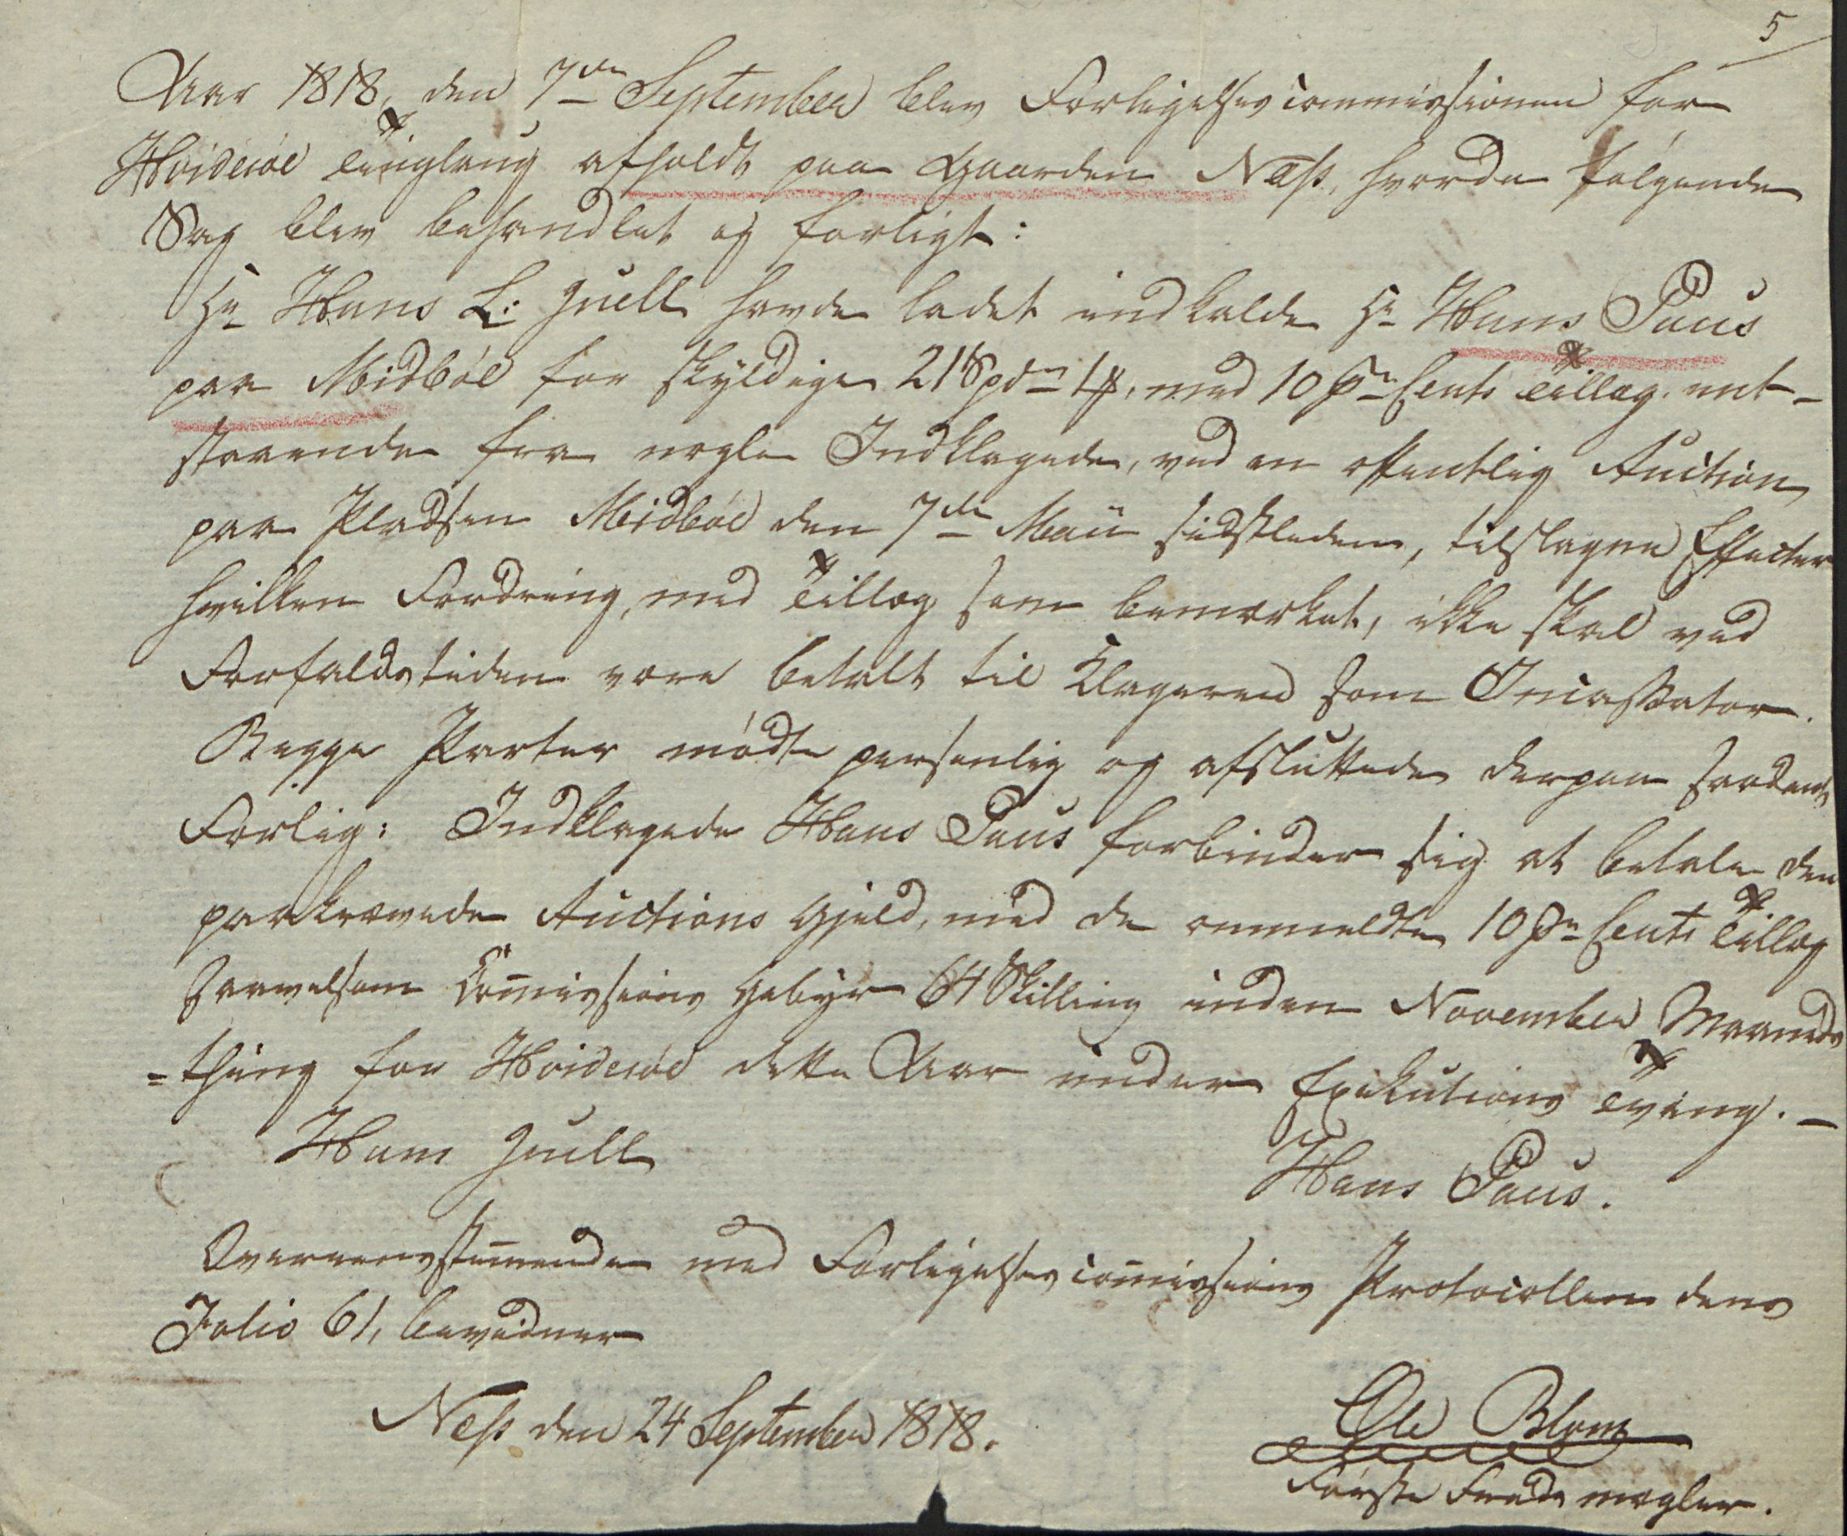 5
Aar 1818, den 7de September blev Forligelsescommissionen for
Hvideseie Tinglaug afholdt paa Gaarden Næss, hvorda følgende
Sag blev behandlet og forligt:
Hr Hans L: Juell havde ladet indkalde Hr Hans Paus
paa Midbøe for skyldige 21 Spdr 1 #, med 10 Pr Cents Tillæg, ent-
staaende fra nogle Indklagede, ved en offentlig Auction,
paa Pladsen Midbøe den 7de Maii sidstleden, tilslagne Effecter
hvilken Fordring, med Tillæg som bemærket, ikke skal ved
Forfaldstiden være betalt til Klageren som Incassator.
Begge Parter mødte personlig og afsluttede derpaa saadant
Forlig: Indklagede Hans Paus forbinder sig at betale den
paakrævede Auctions Gjeld, med de ommeldte 10 Pr Cents Tillæg
saavelsom Com̄issions Gebyr 64 Skilling inden November Maaneds
=thing for Hvideseie dette Aar under Exekutions Tvang. -
Hans Juell
Hans Paus.
Overeensstem̄ende med Forligelsescom̄issions Protocollen dens
Folio 61, bevidner
Næss den 24 September 1818.
Ole Blom
Første Fredsmægler.